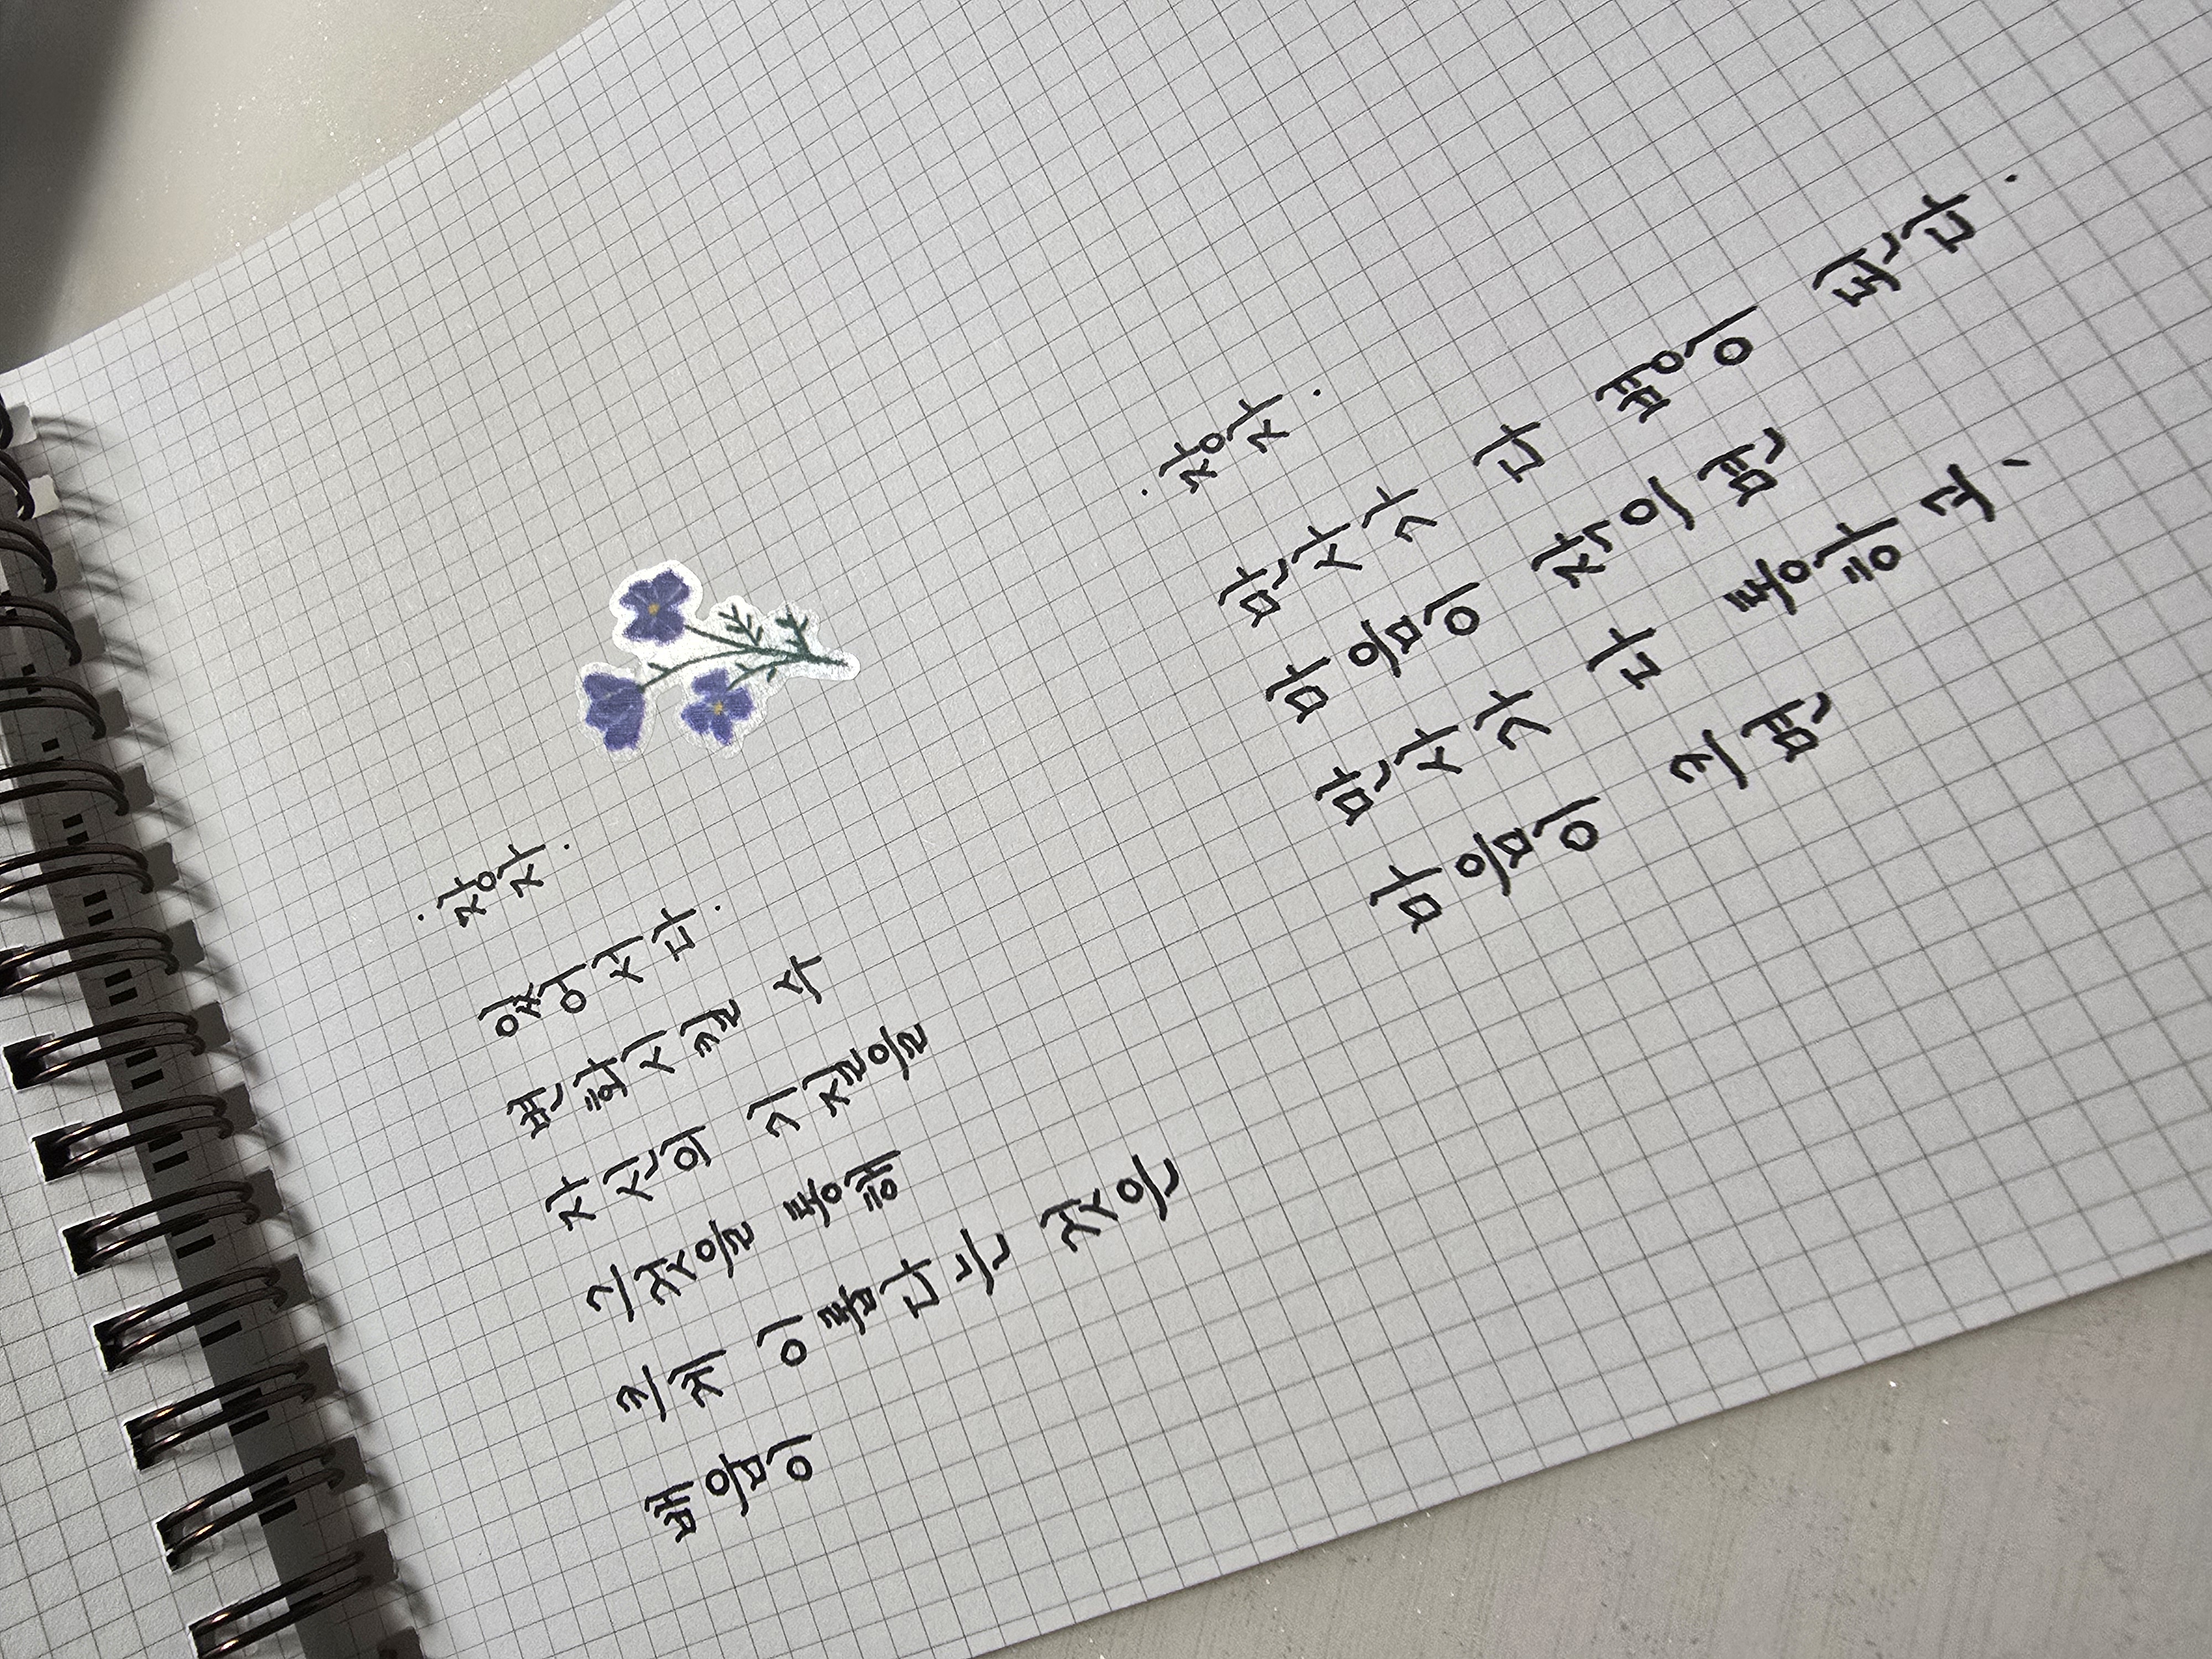 배움이
크게 이롭다는 것은
그것을 통해
자신의 기질을
변화시킬 수
있어서다.
·장자·
마음이 크면
만사가 다 통하고,
마음이 작으면
만사가 다 병이 된다.
·장자·